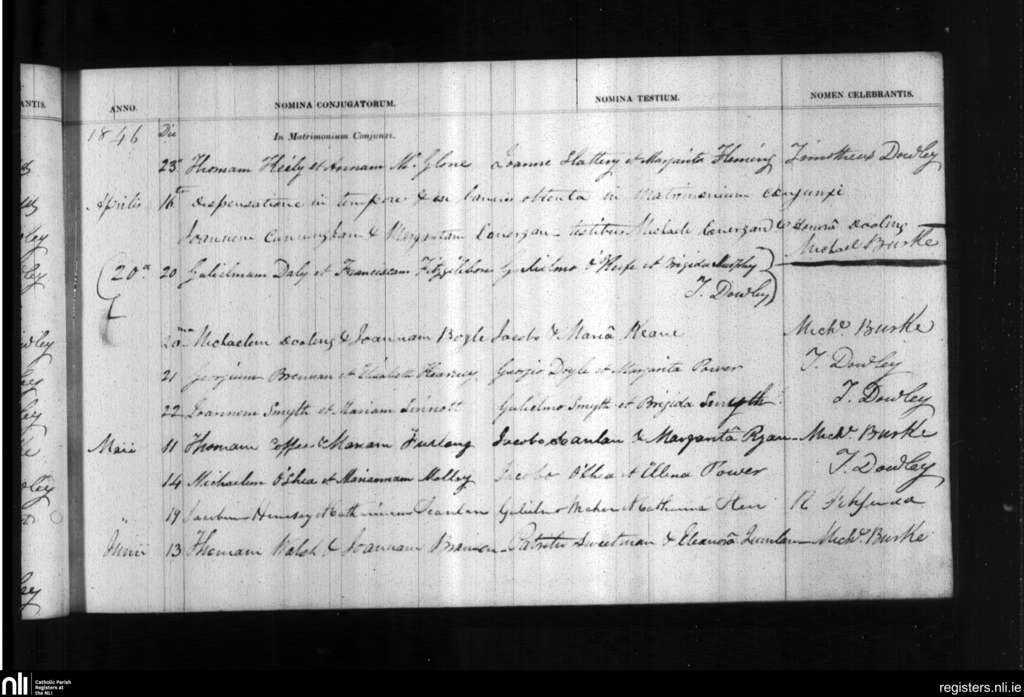 ANTIS.
ANNO. NOMINA CONJUGATORUM. NOMINA TESTIUM. NOMEN CELEBRANTIS.
1846 Die In Matrimonium Conjunxi.
23 Thomam Heily et Annam McGlone Joanne Slattery et Margarita Fleming Timotheus Dowley
Aprilis 16th dispensatione in tempore & in bannis obtenta in matrimonium conjunxi
Joannem Cunningham & Margaritam Lonergan testibus Michaele Lonergan & Honorâ Dooling
Michael Burke
20a 20 Gulielmum Daly et Franciscam Fitzgibbon Gulielmo O'Keefe et Brigida Murphy
T. Dowley
20 Michaelem Dooling & Joannam Bogle Jacobo & Mariâ Keane Michl Burke
21 Georgium Brennan et Elisabeth Kearney Georgio Doyle et Margarita Power T. Dowley
22 Joannem Smyth et Mariam Sinnott Gulielmo Smyth et Brigida Smyth T. Dowley
Maii 11 Thomam & Mariam Furlong Jacobo Scanlan & Margaritâ Ryan Michl Burke
14 Michaelem O'Shea et Mariannam Molloy Jacobo O'Shea et Ellena Power T. Dowley
19 Jacobum Hennesy et Catharinam Scanlan Gulielmo Meher & Catharina R
Junii 13 Thomam Walsh & Joannam Patritio Sweetman & Eleanorâ Quinlan Michl Burke
nli Catholic Parish
Registers at
the NLI
registers.nli.ie